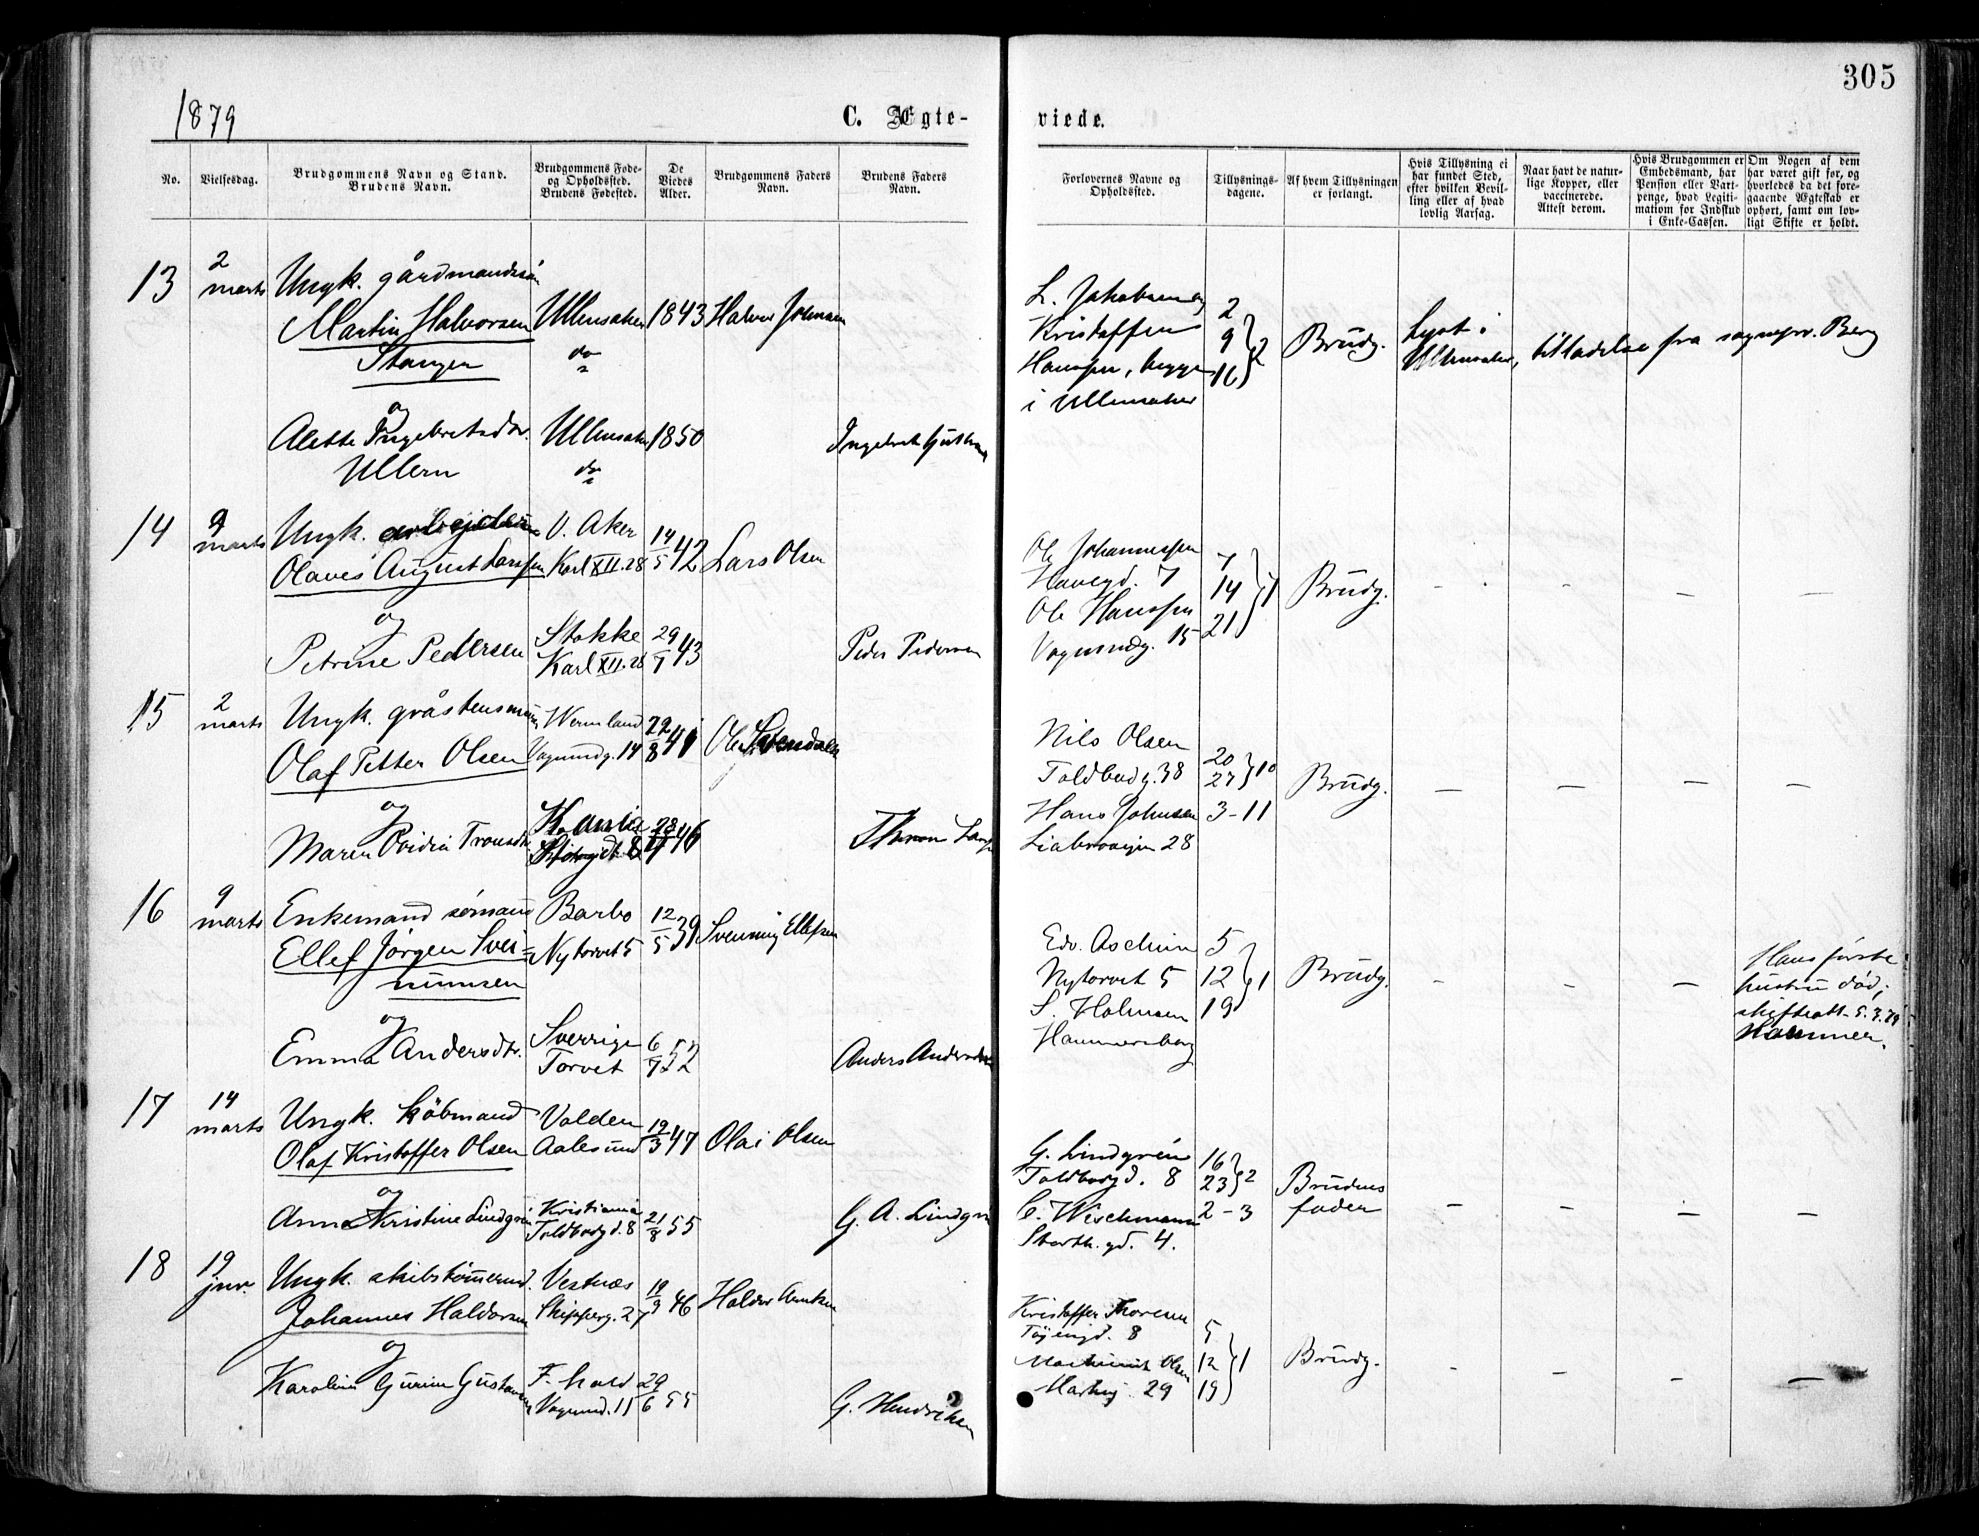 305
1879
C. Ægte-
viede.
No.
Vielsesdag.
Brudgommens Navn og Stand.
Brudens Navn.
Brudgommens Føde-
og Opholdssted.
Brudens Fødested.
De
Viedes
Alder.
Brudgommens Faders
Navn.
Brudens Faders
Navn.
Forlovernes Navne og
Opholdssted.
Tillysnings-
dagene.
Af hvem Tillysningen
er forlangt.
Hvis Tillysning ei
har fundet Sted,
efter hvilken Bevil-
ling eller af hvad
lovlig Aarsag.
Naar havt de natur-
lige Kopper, eller
vaccinerede.
Attest derom.
Hvis Brudgommen er
Embedsmand, har
Pension eller Vart-
penge, hvad Legiti-
mation for Indskud
i Enke-Cassen.
Om Nogen af dem
har været gift før, og
hvorledes da det fore-
gaaende Ægteskab er
ophørt, samt om lov-
ligt Skifte er holdt.
13
2
marts
Ungk. gårdmandssön
Martin Halvorsen
Stangen
Ullensaker
do
1843
Halvor Johnsen
og
Alette Ingebretsdtr.
Ullern
Ullensaker
do
1850
L. Jakobsen og
Kristoffer
Hanssen, begge
i Ullensaker
2
9
16
2
Brudg.
Lyst i
Ullensaker, tilladelse fra sognepr. Berg
14
9
marts
Ungk.
Olaves August Larssen
V. Aker
Karl XII. 28
14/5 42
Lars Olsen
og
Petrine Pedersen
Stokke
Karl XII. 28
29/7 43
Peder Pedersen
Ole Johannessen
Havegd. 7
Ole Hanssen
Vognmdg. 15
7
14
21
1
Brudg.
15
2
marts
Ungk.
Olaf Petter Olsen
Wermland
Vognmdg. 14
22/8 41
Ole
og
Maren Ovidia
K.ania
46
Nils Olsen
Toldbodg. 38
Hans Johnsen
Liabroveien 28
20
27
10
3-11
Brudg.
16
9
marts
Enkemand sömand
Ellef Jørgen Svei-
nunnsen
Barbo
Nytorvet 5
12/5 39
Svenning Ellefsen
og
Emma Andersdtr.
Sverrige
Torvet
6/7 52
Anders Anderssen
Edv. Aschim
Nytorvet 5
S. Holmsen
Hammersborg
5
12
19
1
Brudg.
Hans første
hustru död;
skifteatt. 5.3.79
Hammer.
17
14
marts
Ungk. köbmand
Olaf Kristoffer Olsen
Volden
Aalesund
19/3 47
Olai Olsen
og
Anna Kristine Lindgrén
Kristiania
Toldbodgd. 8
21/8 55
G. A. Lindgrén
G. Lindgrén
Toldbodgd. 8
C. Wischmann
Storth. gd. 4.
16
23
2
2-3
Brudens
fader
18
19
jnr.
Ungk. skibstömmermd.
Johannes Haldorsen
Vestnæs
Skipperg. 27
19/9 46
Haldor
og
Karoline Gurine Gustavsen
F.hald
Vognmd. 11
29/6 55
G. Hendriksen
Kristoffer Thoresen
Töiengd. 8
Olsen
29
5
12
19
1
Brudg.